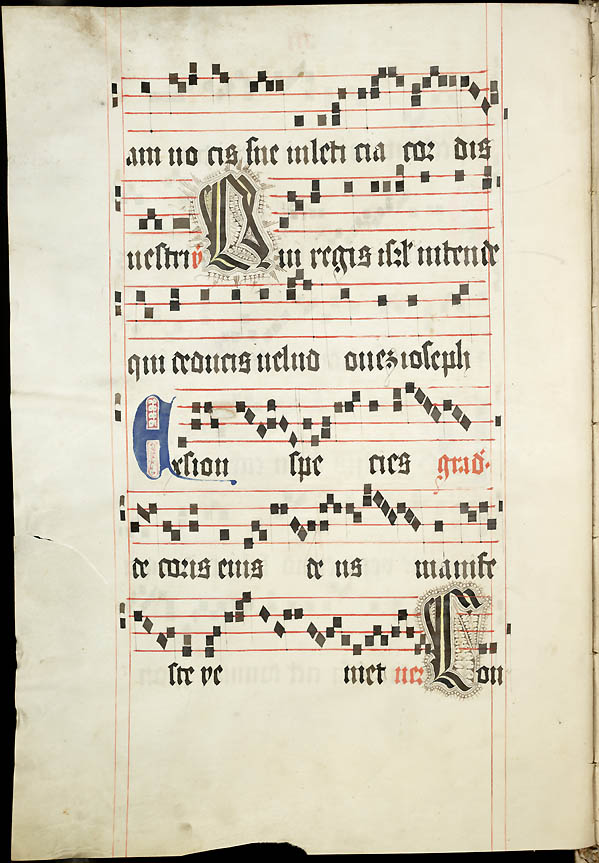 am uo cis sue in leti cia cor dis
uestri ℣ Qui regis isrl' intende
qui deducis uelud ouez ioseph
Ex sion spe cies grad'
de coris eius de us manife
ste ve niet ver Con